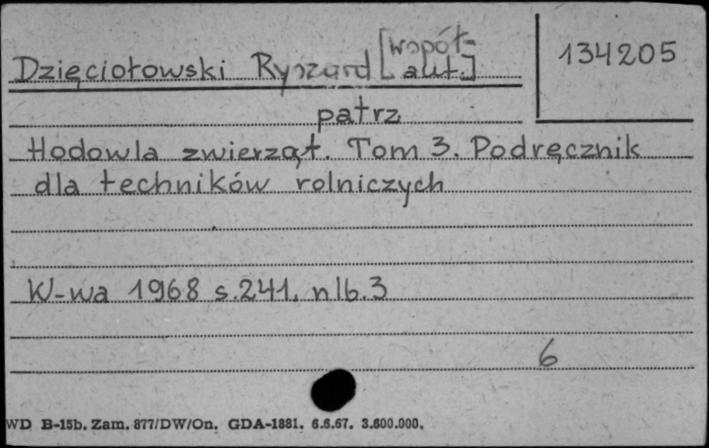 Dzięciołowski Ryszard [współ-
aut.]
134205
patrz
Hodowla zwierząt. Tom 3. Podręcznik
dla techników rolniczych
W-wa 1968 s.241, nlb.3
6
WD B-15b. Zam. 877/DW/On. GDA-1881. 6.6.67. 3.600.000.